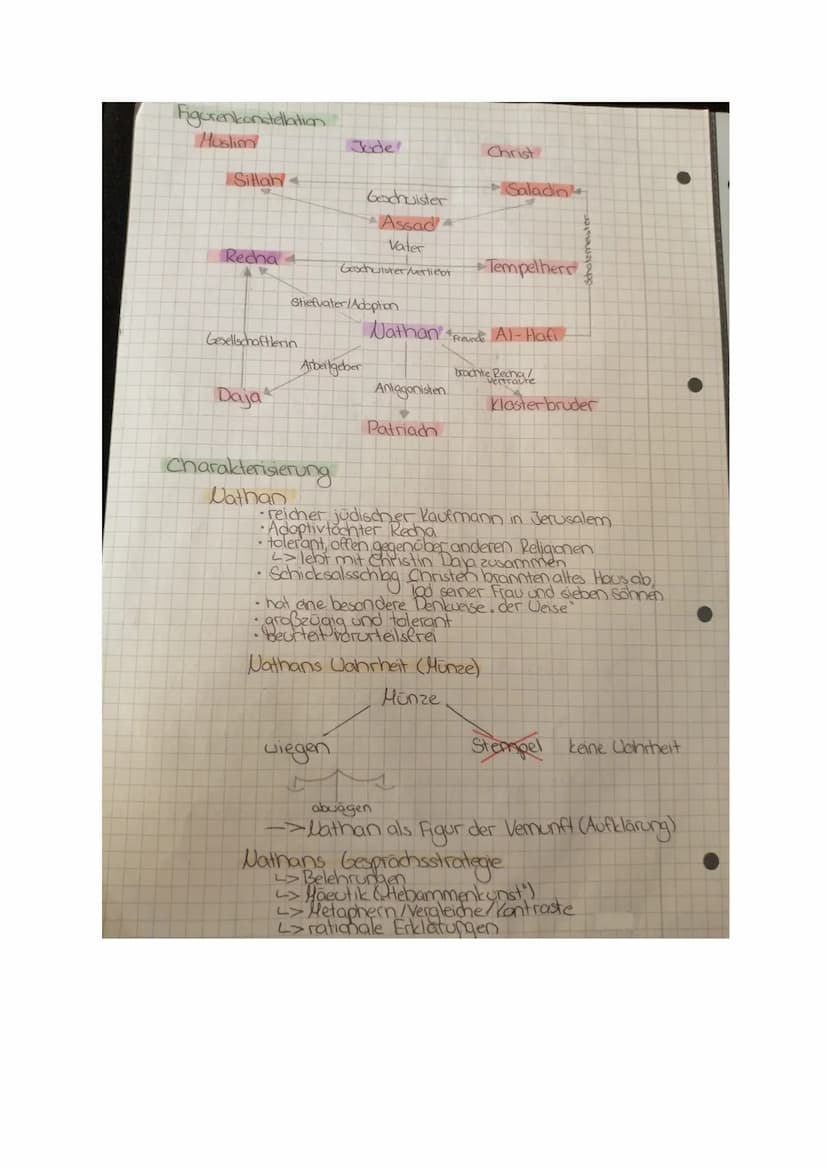 Figurenkonstellation
Muslim Jude Christ
Sittah Saladin
Geschwister
Assad
Vater
Recha Tempelherr
Geschwister/verliebt
Schatzmeister
Stiefvater/Adoption
Nathan Freunde Al-Hafi
Gesellschafterin
Arbeitgeber
brachte Recha/
Vertraute
Daja Antagonisten Klosterbruder
Patriach
Charakterisierung
Nathan
· reicher, jüdischer Kaufmann in Jerusalem
· Adoptivtochter Recha
· tolerant, offen gegenüber anderen Religionen
↳> lebt mit Christin Daja zusammen
· Schicksalsschlag Christen brannten altes Haus ab,
Tod seiner Frau und sieben Söhnen
· hat eine besondere Denkweise „der Weise"
· großzügig und tolerant
· beurteilt vorurteilsfrei
Nathans Wahrheit (Münze)
Münze
wiegen Stempel keine Wahrheit
abwägen
—> Nathan als Figur der Vernunft (Aufklärung)
Nathans Gesprächsstrategie
↳> Belehrungen
↳> Mäeutik („Hebammenkunst")
↳> Metaphern/Vergleiche/Kontraste
↳> rationale Erklärungen